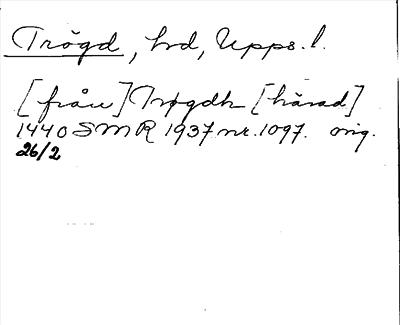 Trögd, hd, Upps. l.
[från] Trøgdh [härad]
1440 SMR 1937 nr. 1097. orig.
26/2